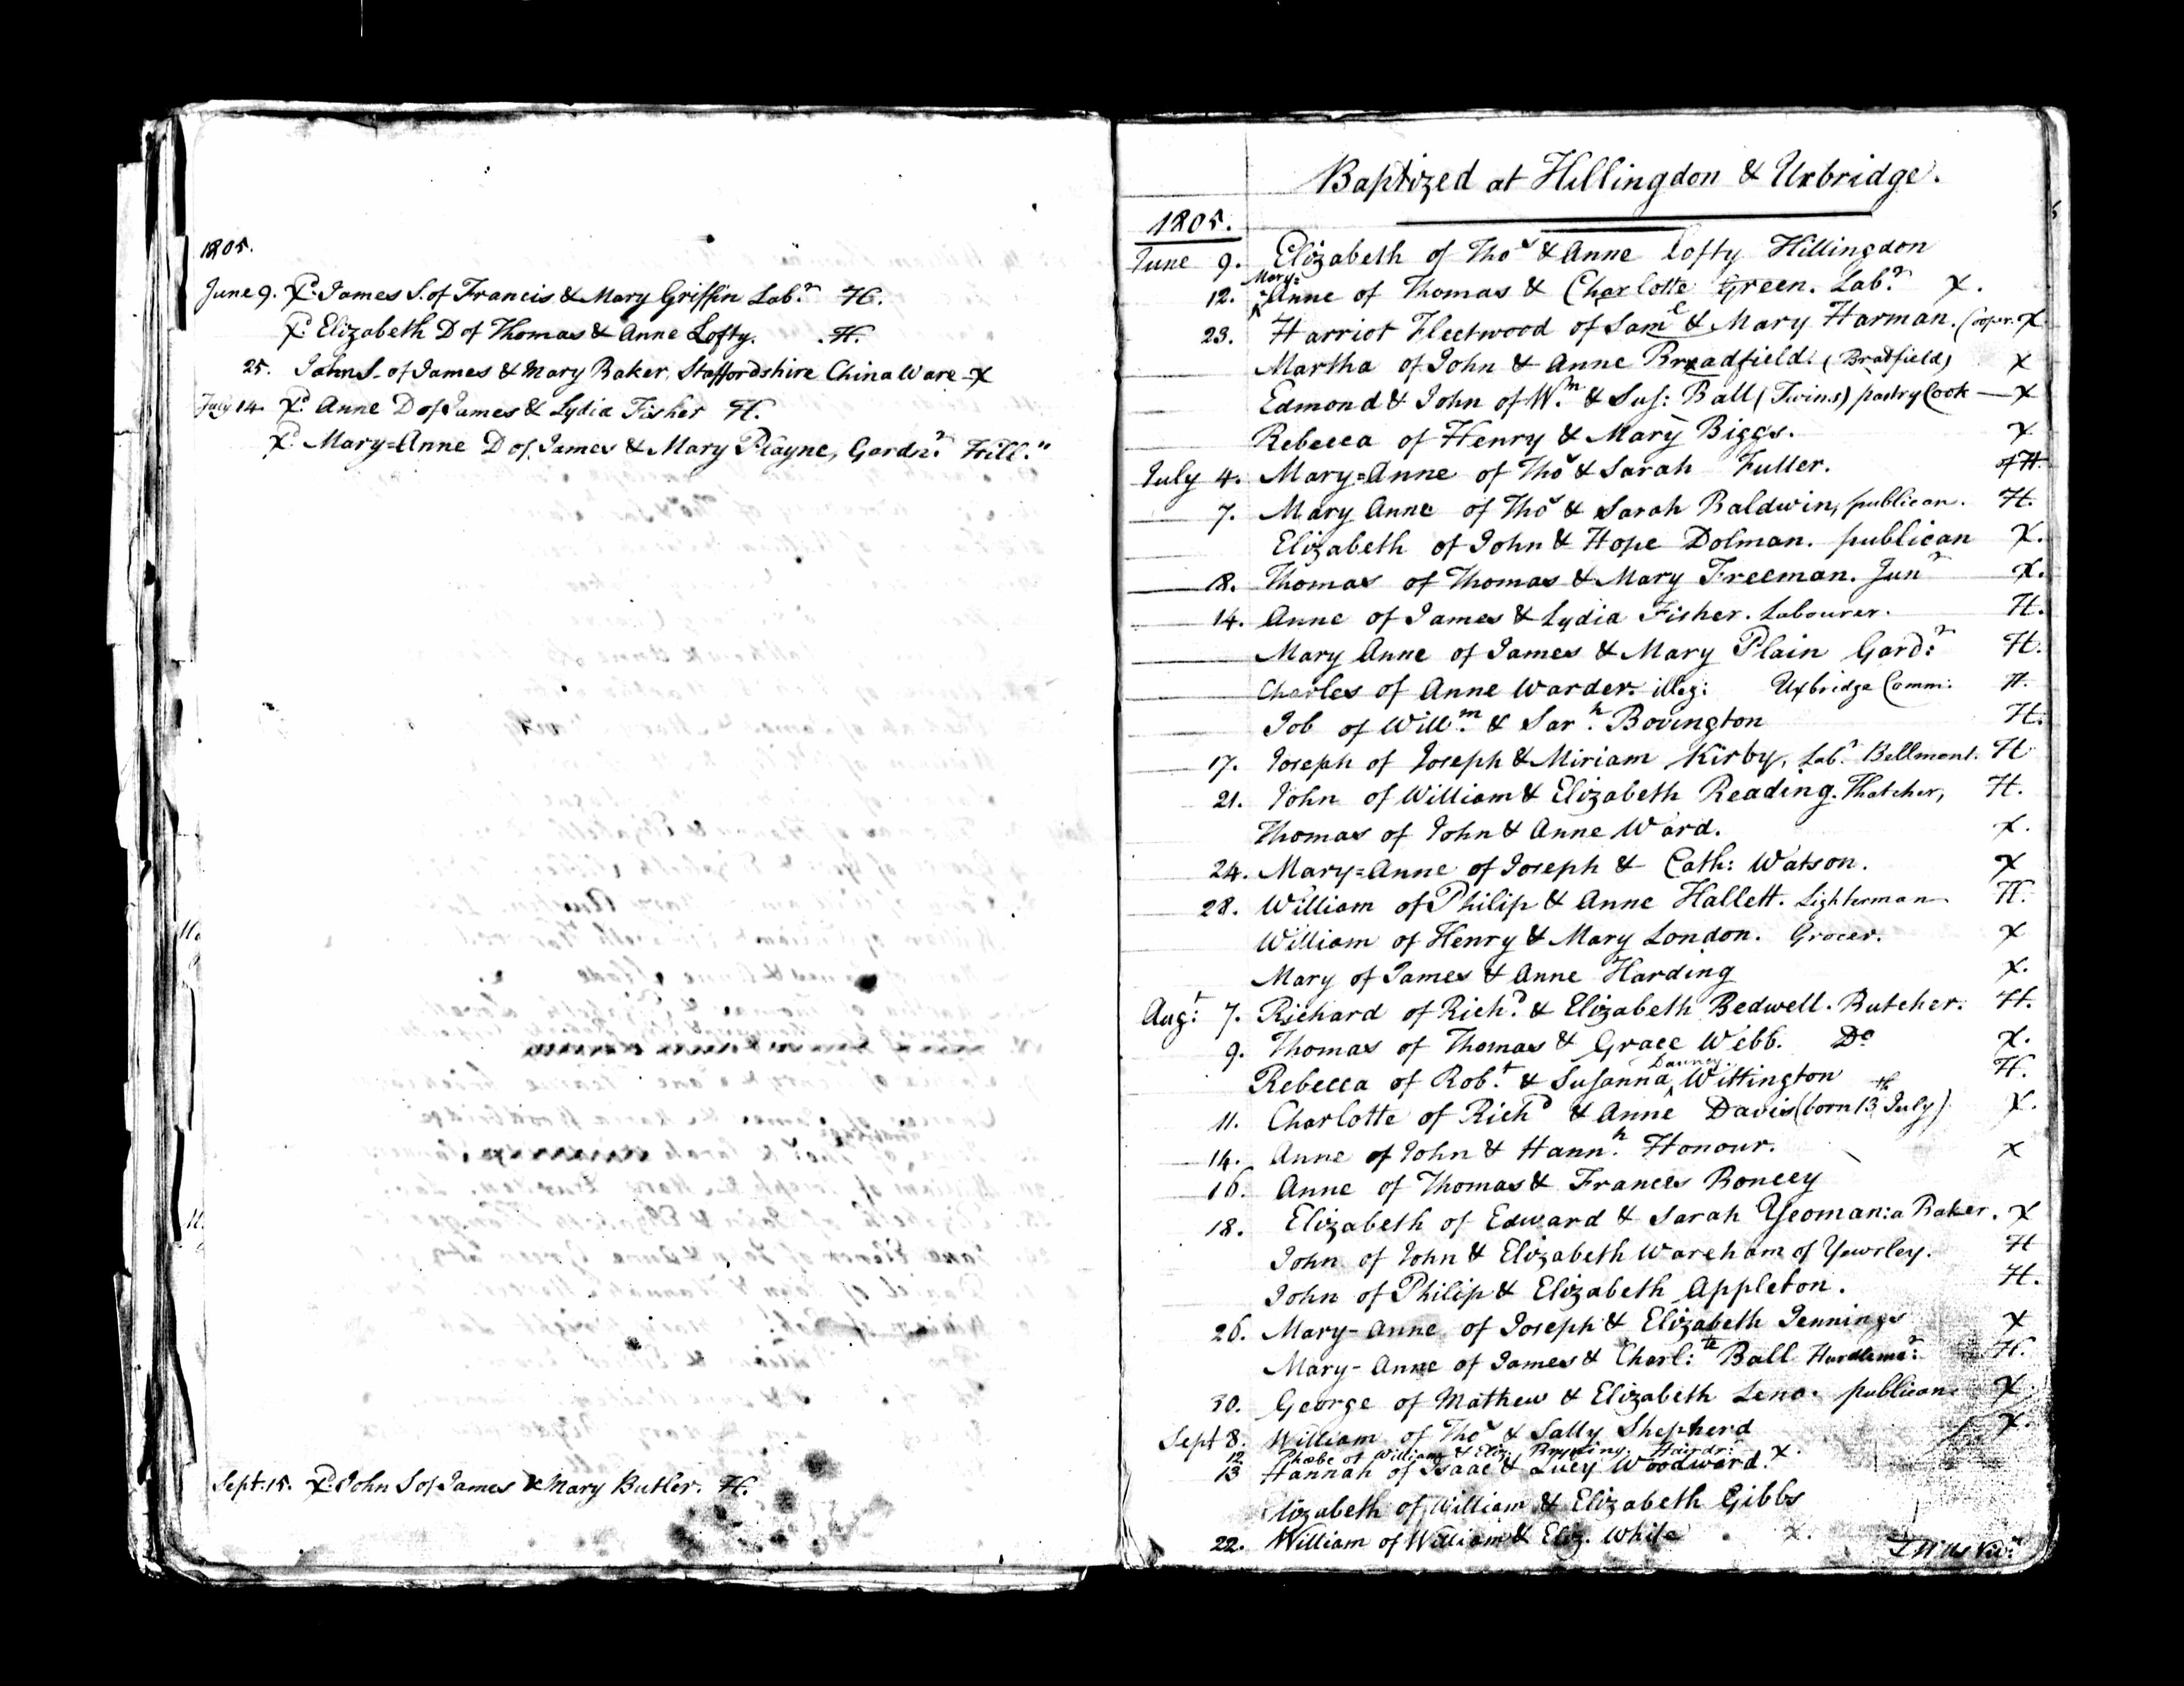 1805.
June 9. Xd. James S. of Francis & Mary Griffin Labr. H.
Xd. Elizabeth D of Thomas & Anne Lofty. H.
25. John S. of James & Mary Baker, Staffordshire China Ware - X
July 14. Xd. Anne D of James & Lydia Fisher H.
Xd. Mary=Anne D of James & Mary Playne, Gardnr. Hill.n
Sept. 15. Xd. John S of James & Mary Butler. H.
Baptized at Hillingdon & Uxbridge.
1805.
June 9. Elizabeth of Thos & Anne Lofty Hillingdon
12. Mary= Anne of Thomas & Charlotte Green. Labr. X.
23. Harriot Fleetwood of Saml & Mary Harman. Cooper. X
Martha of John & Anne Broadfield. (Bradfield) X
Edmond & John of Wm. & Sus: Ball (Twins) pastry Cook — X
Rebecca of Henry & Mary Biggs. X
July 4. Mary=Anne of Thos & Sarah Fuller. of H.
7. Mary Anne of Thos & Sarah Baldwin, publican. H.
Elizabeth of John & Hope Dolman. publican X.
18. Thomas of Thomas & Mary Freeman. Junr X.
14. Anne of James & Lydia Fisher. Labourer. H.
Mary Anne of James & Mary Plain Gard:r H.
Charles of Anne Warder. illeg: Uxbridge Comm: H.
Job of Willm. & Sarh. Bovington H.
17. Joseph of Joseph & Miriam Kirby, Labr. Bellmont. H
21. John of William & Elizabeth Reading. Thatcher, H.
Thomas of John & Anne Ward. X.
24. Mary=Anne of Joseph & Cath: Watson. X
28. William of Philip & Anne Hallett. Lighterman H.
William of Henry & Mary London. Grocer. X
Mary of James & Anne Harding X.
Aug:t 7. Richard of Richd. & Elizabeth Bedwell. Butcher. H.
9. Thomas of Thomas & Grace Webb. Do X.
Rebecca of Robt. & Susanna Wittington H.
11. Charlotte of Richd & Anne Davis (born 13th July) X.
14. Anne of John & Hannh. Honour. X
16. Anne of Thomas & Frances Roncey
18. Elizabeth of Edward & Sarah Yeoman: a Baker. X
John of John & Elizabeth Wareham of Yewsley. H
John of Philip & Elizabeth Appleton. H.
26. Mary-Anne of Joseph & Elizabeth Jennings X
Mary-Anne of James & Charl:te Ball Hurdlema:r H.
30. George of Mathew & Elizabeth Leno. publican X.
Sept 8. William of Thos & Sally Shepherd X.
12 Phoebe of William & Eliz: Hairdr: X.
13 Hannah of Isaac & Lucy Woodward.
Elizabeth of William & Elizabeth Gibbs
22. William of William & Eliz. White X.